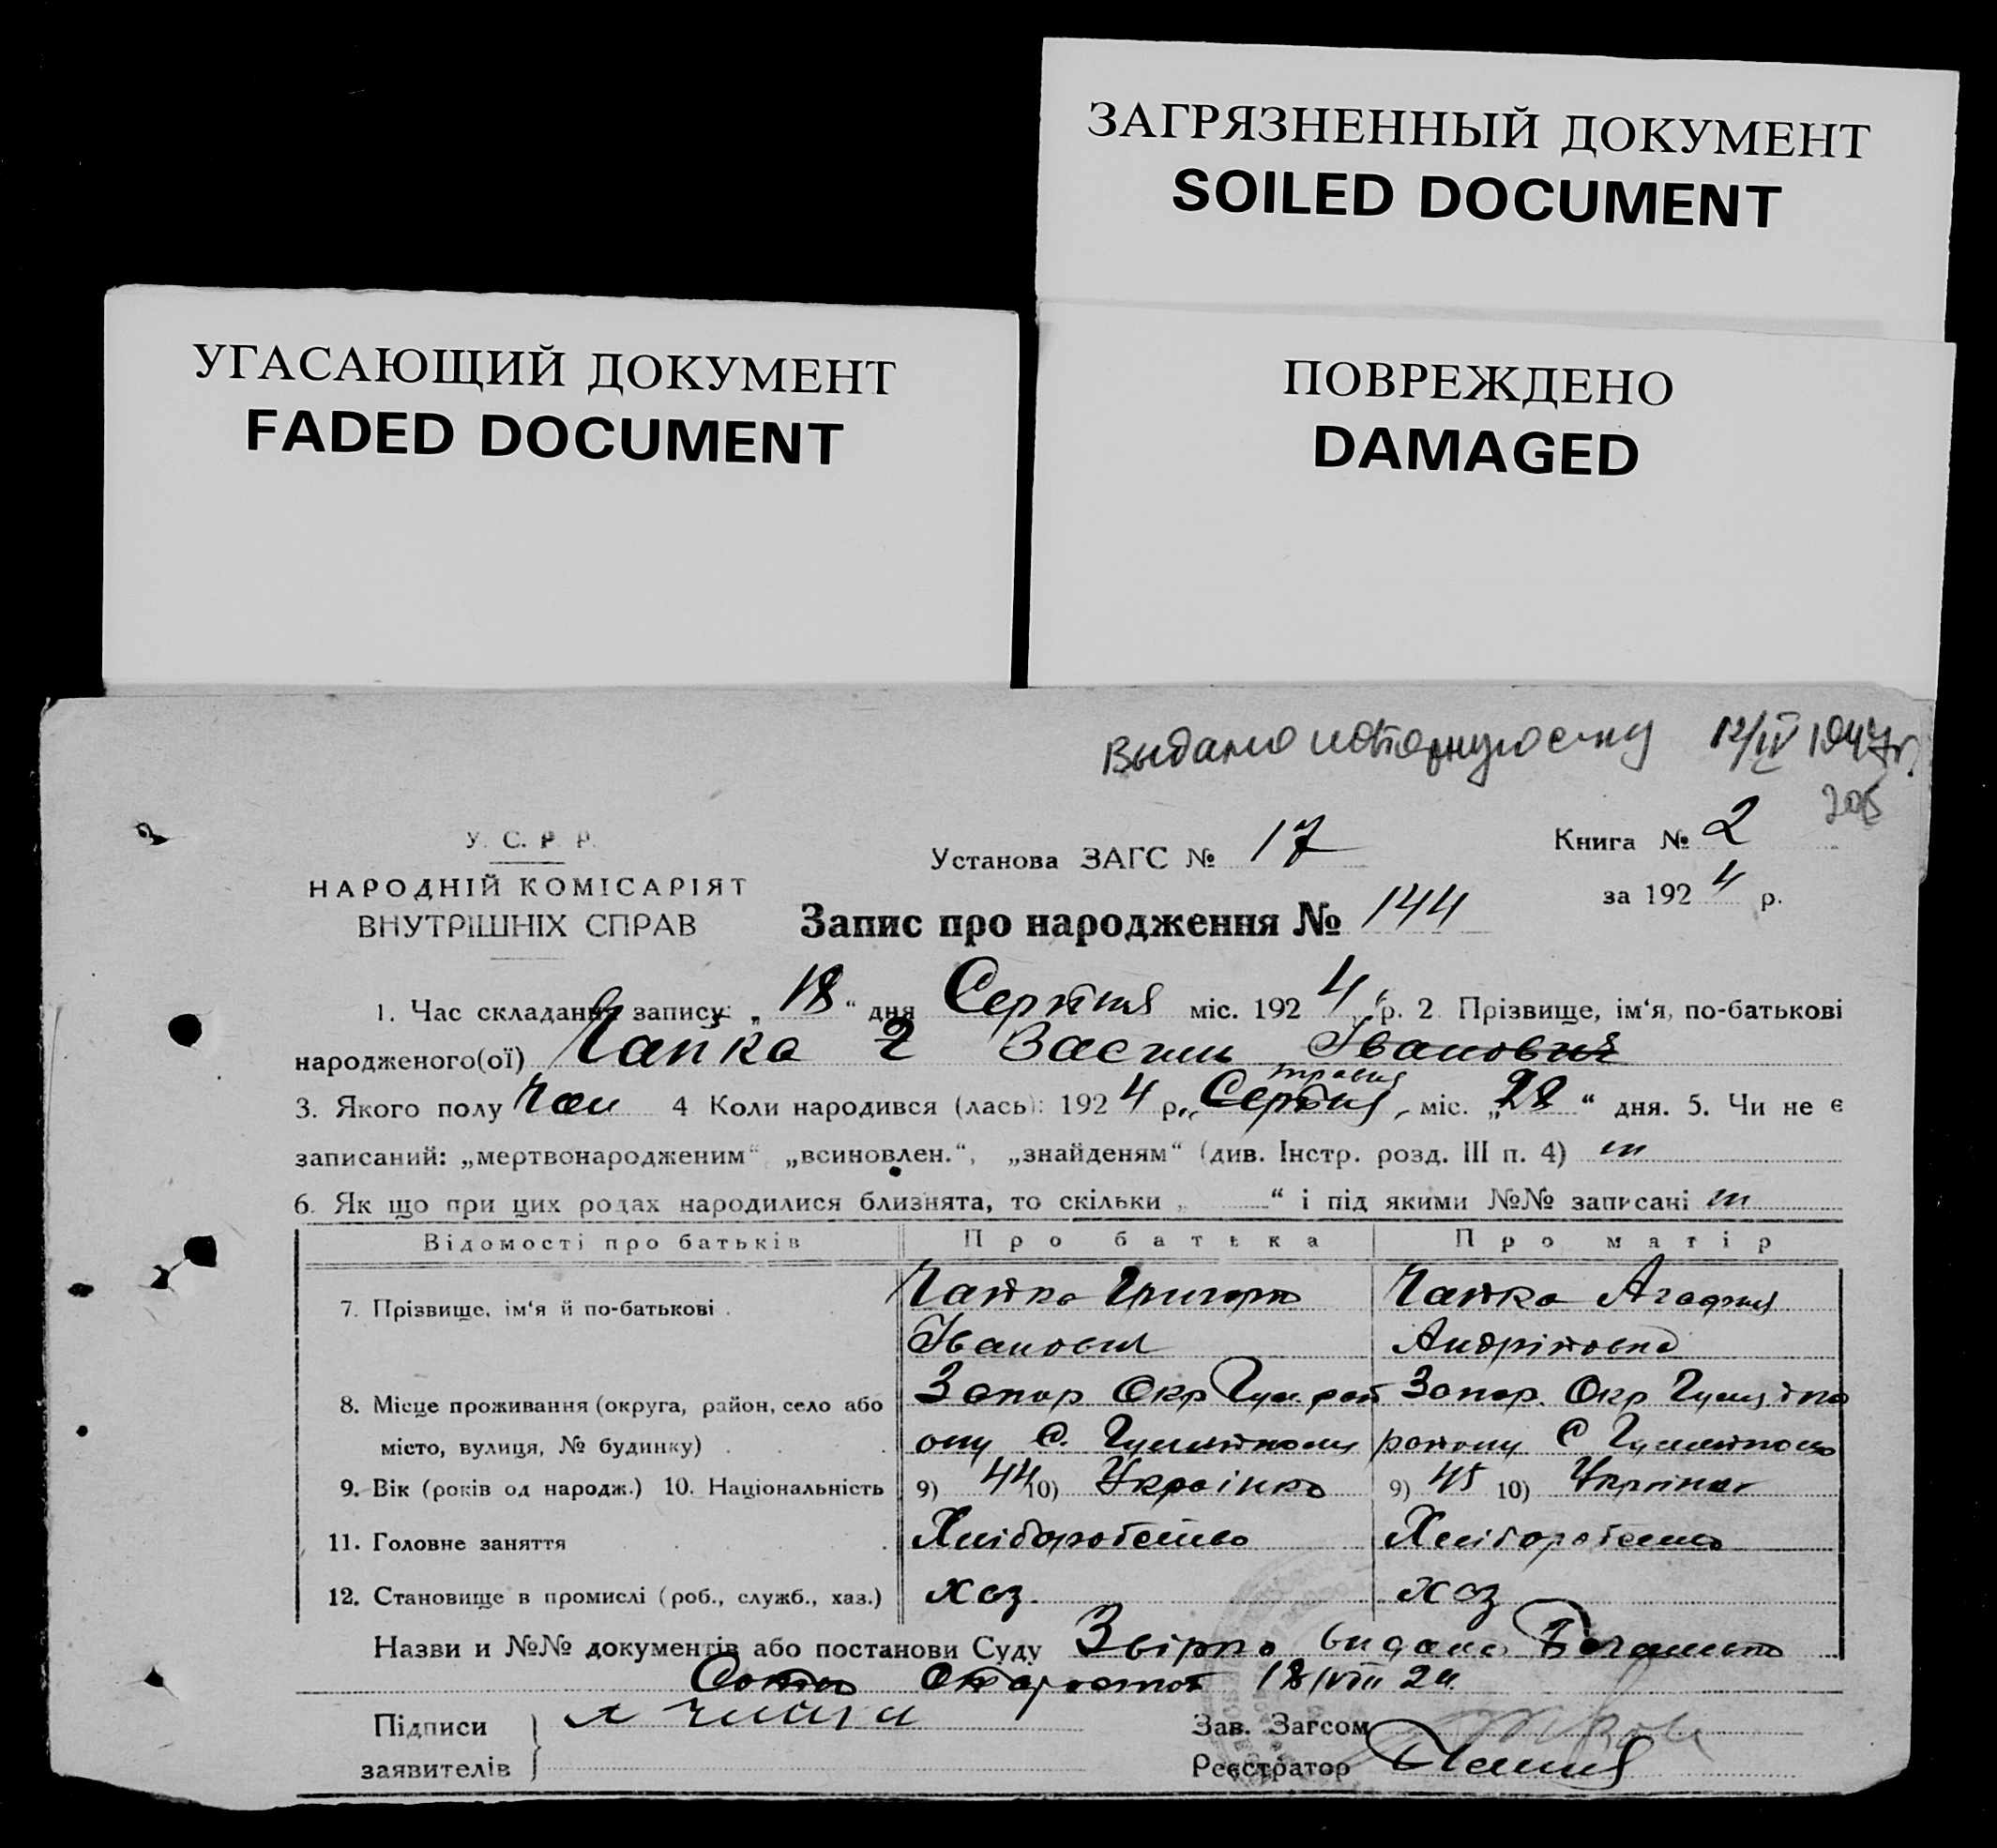 ЗАГРЯЗНЕННЫЙ ДОКУМЕНТ
SOILED DOCUMENT
УГАСАЮЩИЙ ДОКУМЕНТ
FADED DOCUMENT
ПОВРЕЖДЕНО
DAMAGED
Выдано 12/IV 1947г.
У. С. Р. Р.
НАРОДНІЙ КОМІСАРІЯТ
ВНУТРІШНІХ СПРАВ
Установа ЗАГС № 17
Книга № 2
за 1924 р.
Запис про народження № 144
1. Час складання запису: „18“ дня Серпня міс. 1924 р. 2 Прізвище, ім‘я, по-батькові
народженого(ої) Чайка Іванович
травня
3. Якого полу Чол 4 Коли народився (лась): 1924 р., Серпня, міс. „28“ дня. 5. Чи не є
записаний: „мертвонародженим“ „всиновлен.“, „знайденям“ (див. Інстр. розд. III п. 4)
6. Як що при цих родах народилися близнята, то скільки „ “ і під якими №№ записані
Відомості про батьків Про батька Про матір
7. Прізвище, ім‘я й по-батькові . Чайка Григорій Чайка Агафия
Іванович Андріівна
8. Місце проживання (округа, район, село або Запор Окр Запор. Окр
місто, вулиця, № будинку) . . С. району С
9. Вік (років од народж.) 10. Національність 9) 44 10) Українка 9) 45 10)
11. Головне заняття . . . Хліборобство Хліборобство
12. Становище в промислі (роб., служб., хаз.) хаз. хаз
Назви и №№ документів або постанови Суду видана
18/VIII 24
Підписи
заявителів
Зав. Загсом
Реєстратор